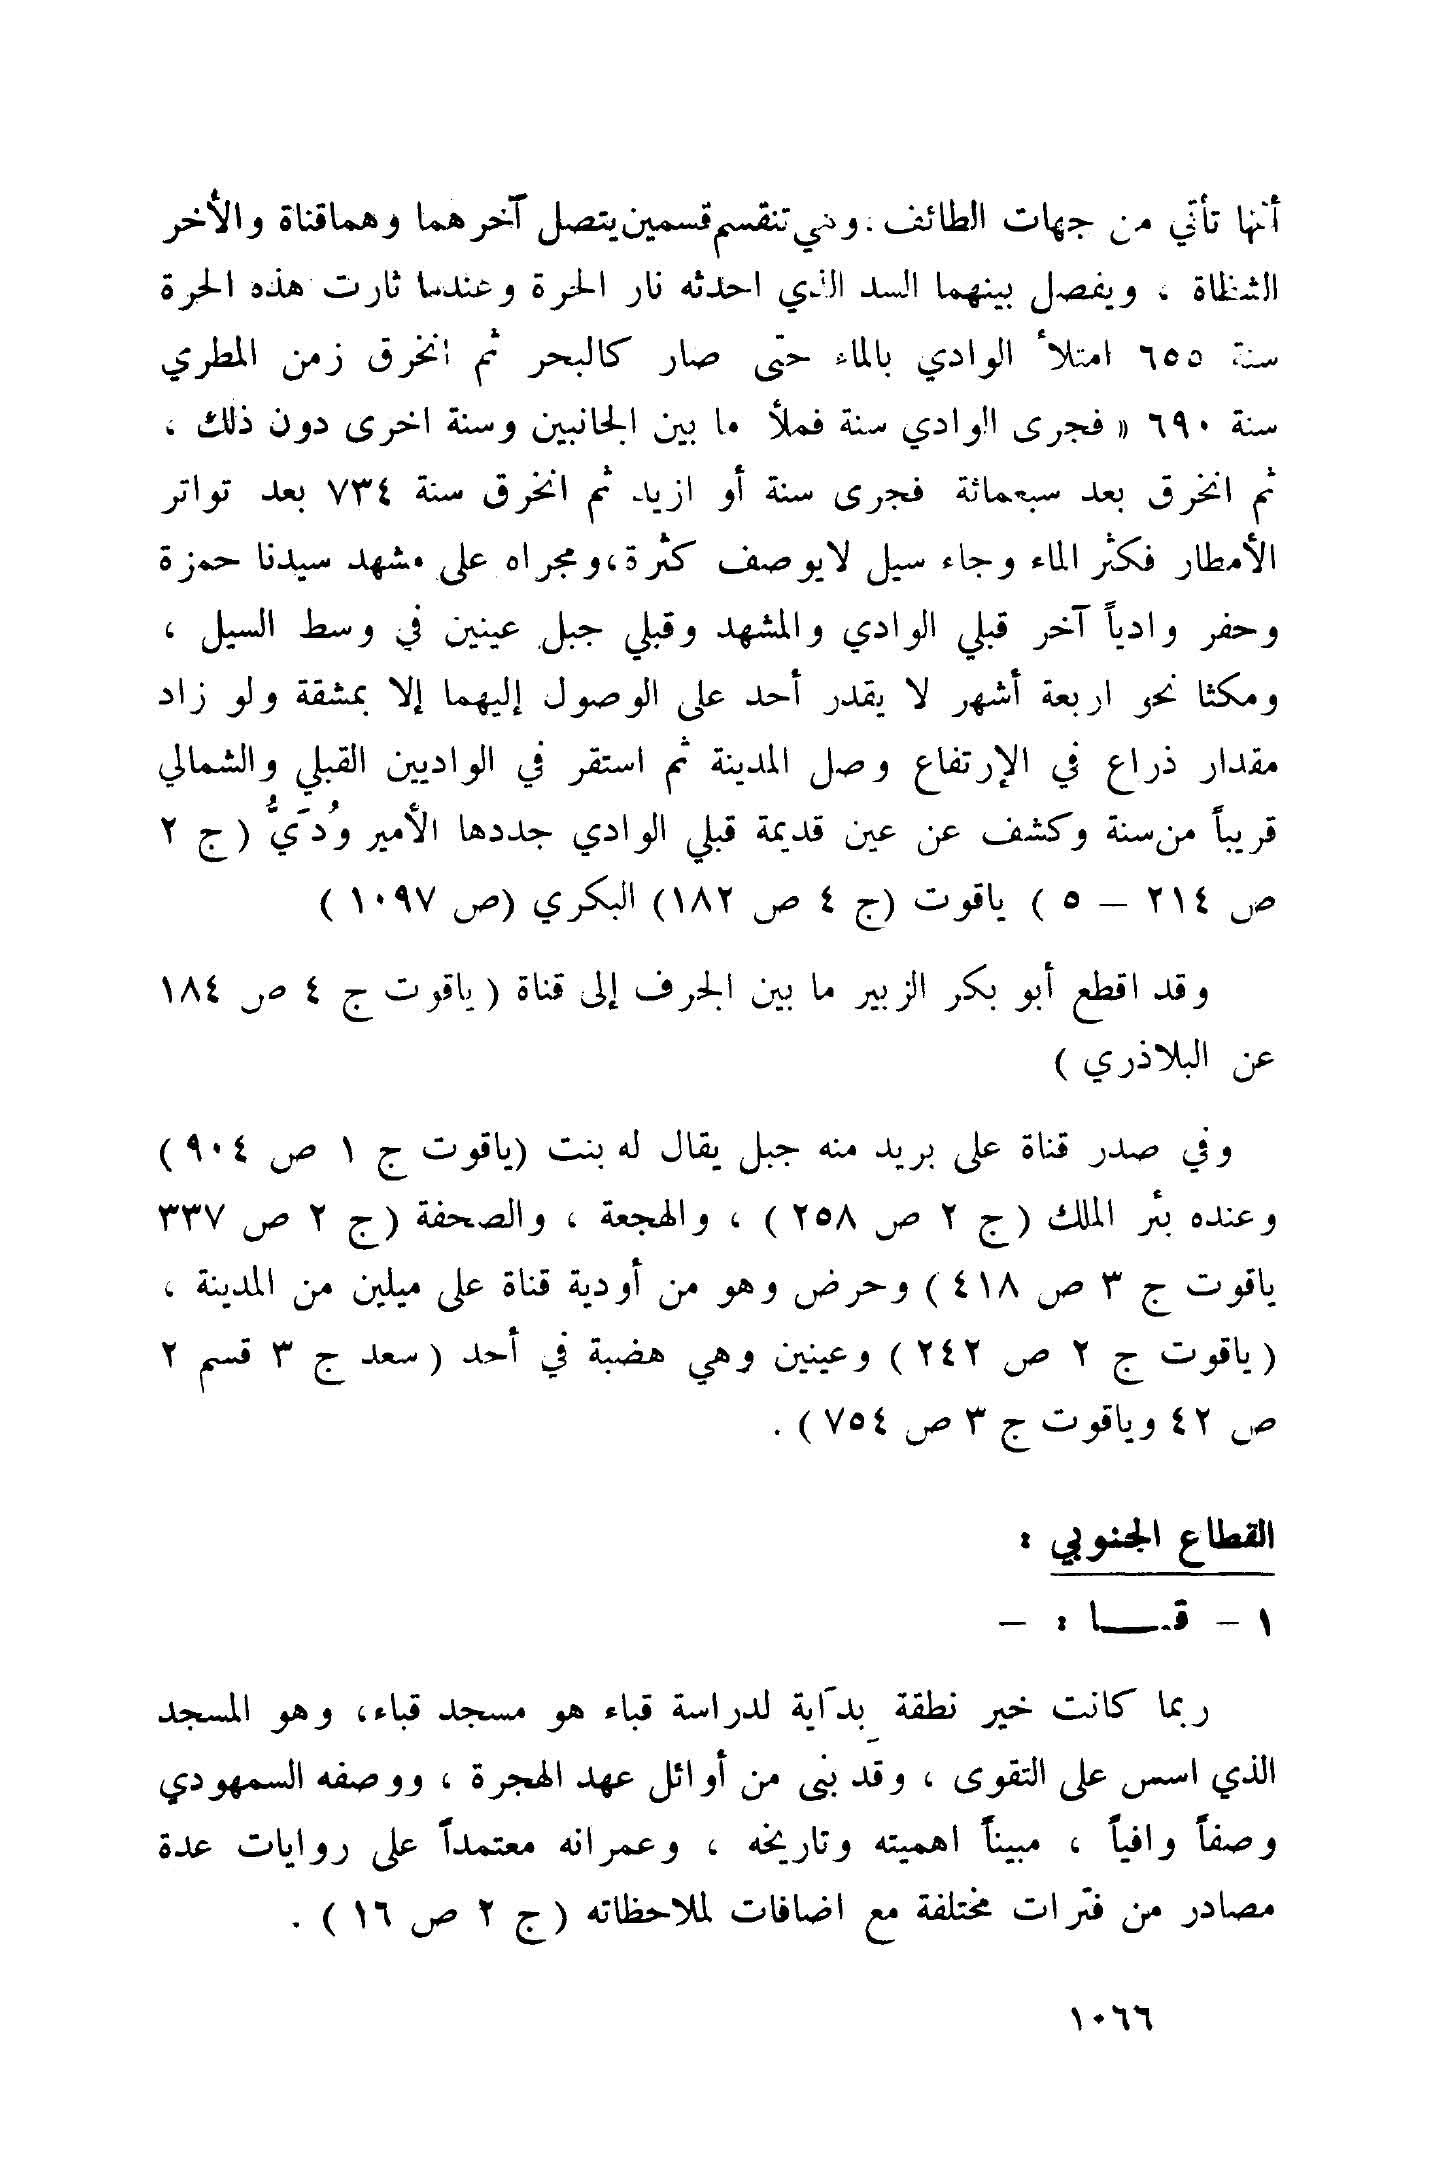 أنها تأتي من جهات الطائف . وهي تنقسم قسمين يتصل آخرهما وهما قناة والأخر
الشظاة ، ويفصل بينهما السد الذي احدثه نار الحرة وعندما ثارت هذه الحرة
سنة ٦٥٥ امتلأ الوادي بالماء حتى صار كالبحر ثم انخرق زمن المطري
سنة ٦٩٠ « فجرى الوادي سنة فملأ ما بين الجانبين وسنة اخرى دون ذلك ،
ثم انخرق بعد سبعمائة فجرى سنة أو ازيد ثم انخرق سنة ٧٣٤ بعد تواتر
الأمطار فكثر الماء وجاء سيل لايوصف كثرة ، ومجراه على مشهد سيدنا حمزة
وحفر وادياً آخر قبلي الوادي والمشهد وقبلي جبل عينين في وسط السيل ،
ومكثا نحو اربعة أشهر لا يقدر أحد على الوصول إليهما إلا بمشقة ولو زاد
مقدار ذراع في الإرتفاع وصل المدينة ثم استقر في الواديين القبلي والشمالي
قريباً من سنة وكشف عن عين قديمة قبلي الوادي جددها الأمير وُدَيُّ ( ج ٢
ص ٢١٤ – ٥ ) ياقوت (ج ٤ ص ١٨٢) البكري (ص ١٠٩٧ )
وقد اقطع أبو بكر الزبير ما بين الجرف إلى قناة ( ياقوت ج ٤ ص ١٨٤
عن البلاذري )
وفي صدر قناة على بريد منه جبل يقال له بنت (ياقوت ج ١ ص ٩٠٤ )
وعنده بئر الملك ( ج ٢ ص ٢٥٨ ) ، والهجعة ، والصحفة (ج ٢ ص ٣٣٧
ياقوت ج ٣ ص ٤١٨ ) وحرض وهو من أودية قناة على ميلين من المدينة ،
( ياقوت ج ٢ ص ٢٤٢ ) وعينين وهي هضبة في أحد ( سعد ج ٣ قسم ٢
ص ٤٢ وياقوت ج ٣ ص ٧٥٤ ) .
القطاع الجنوبي :
١ – قبــا : –
ربما كانت خير نطقة بِدآية لدراسة قباء هو مسجد قباء، وهو المسجد
الذي اسس على التقوى ، وقد بنى من أوائل عهد الهجرة ، ووصفه السمهودي
وصفاً وافياً ، مبيناً اهميته وتاريخه ، وعمرانه معتمداً على روايات عدة
مصادر من فترات مختلفة مع اضافات لملاحظاته ( ج ٢ ص ١٦ ) .
١٠٦٦